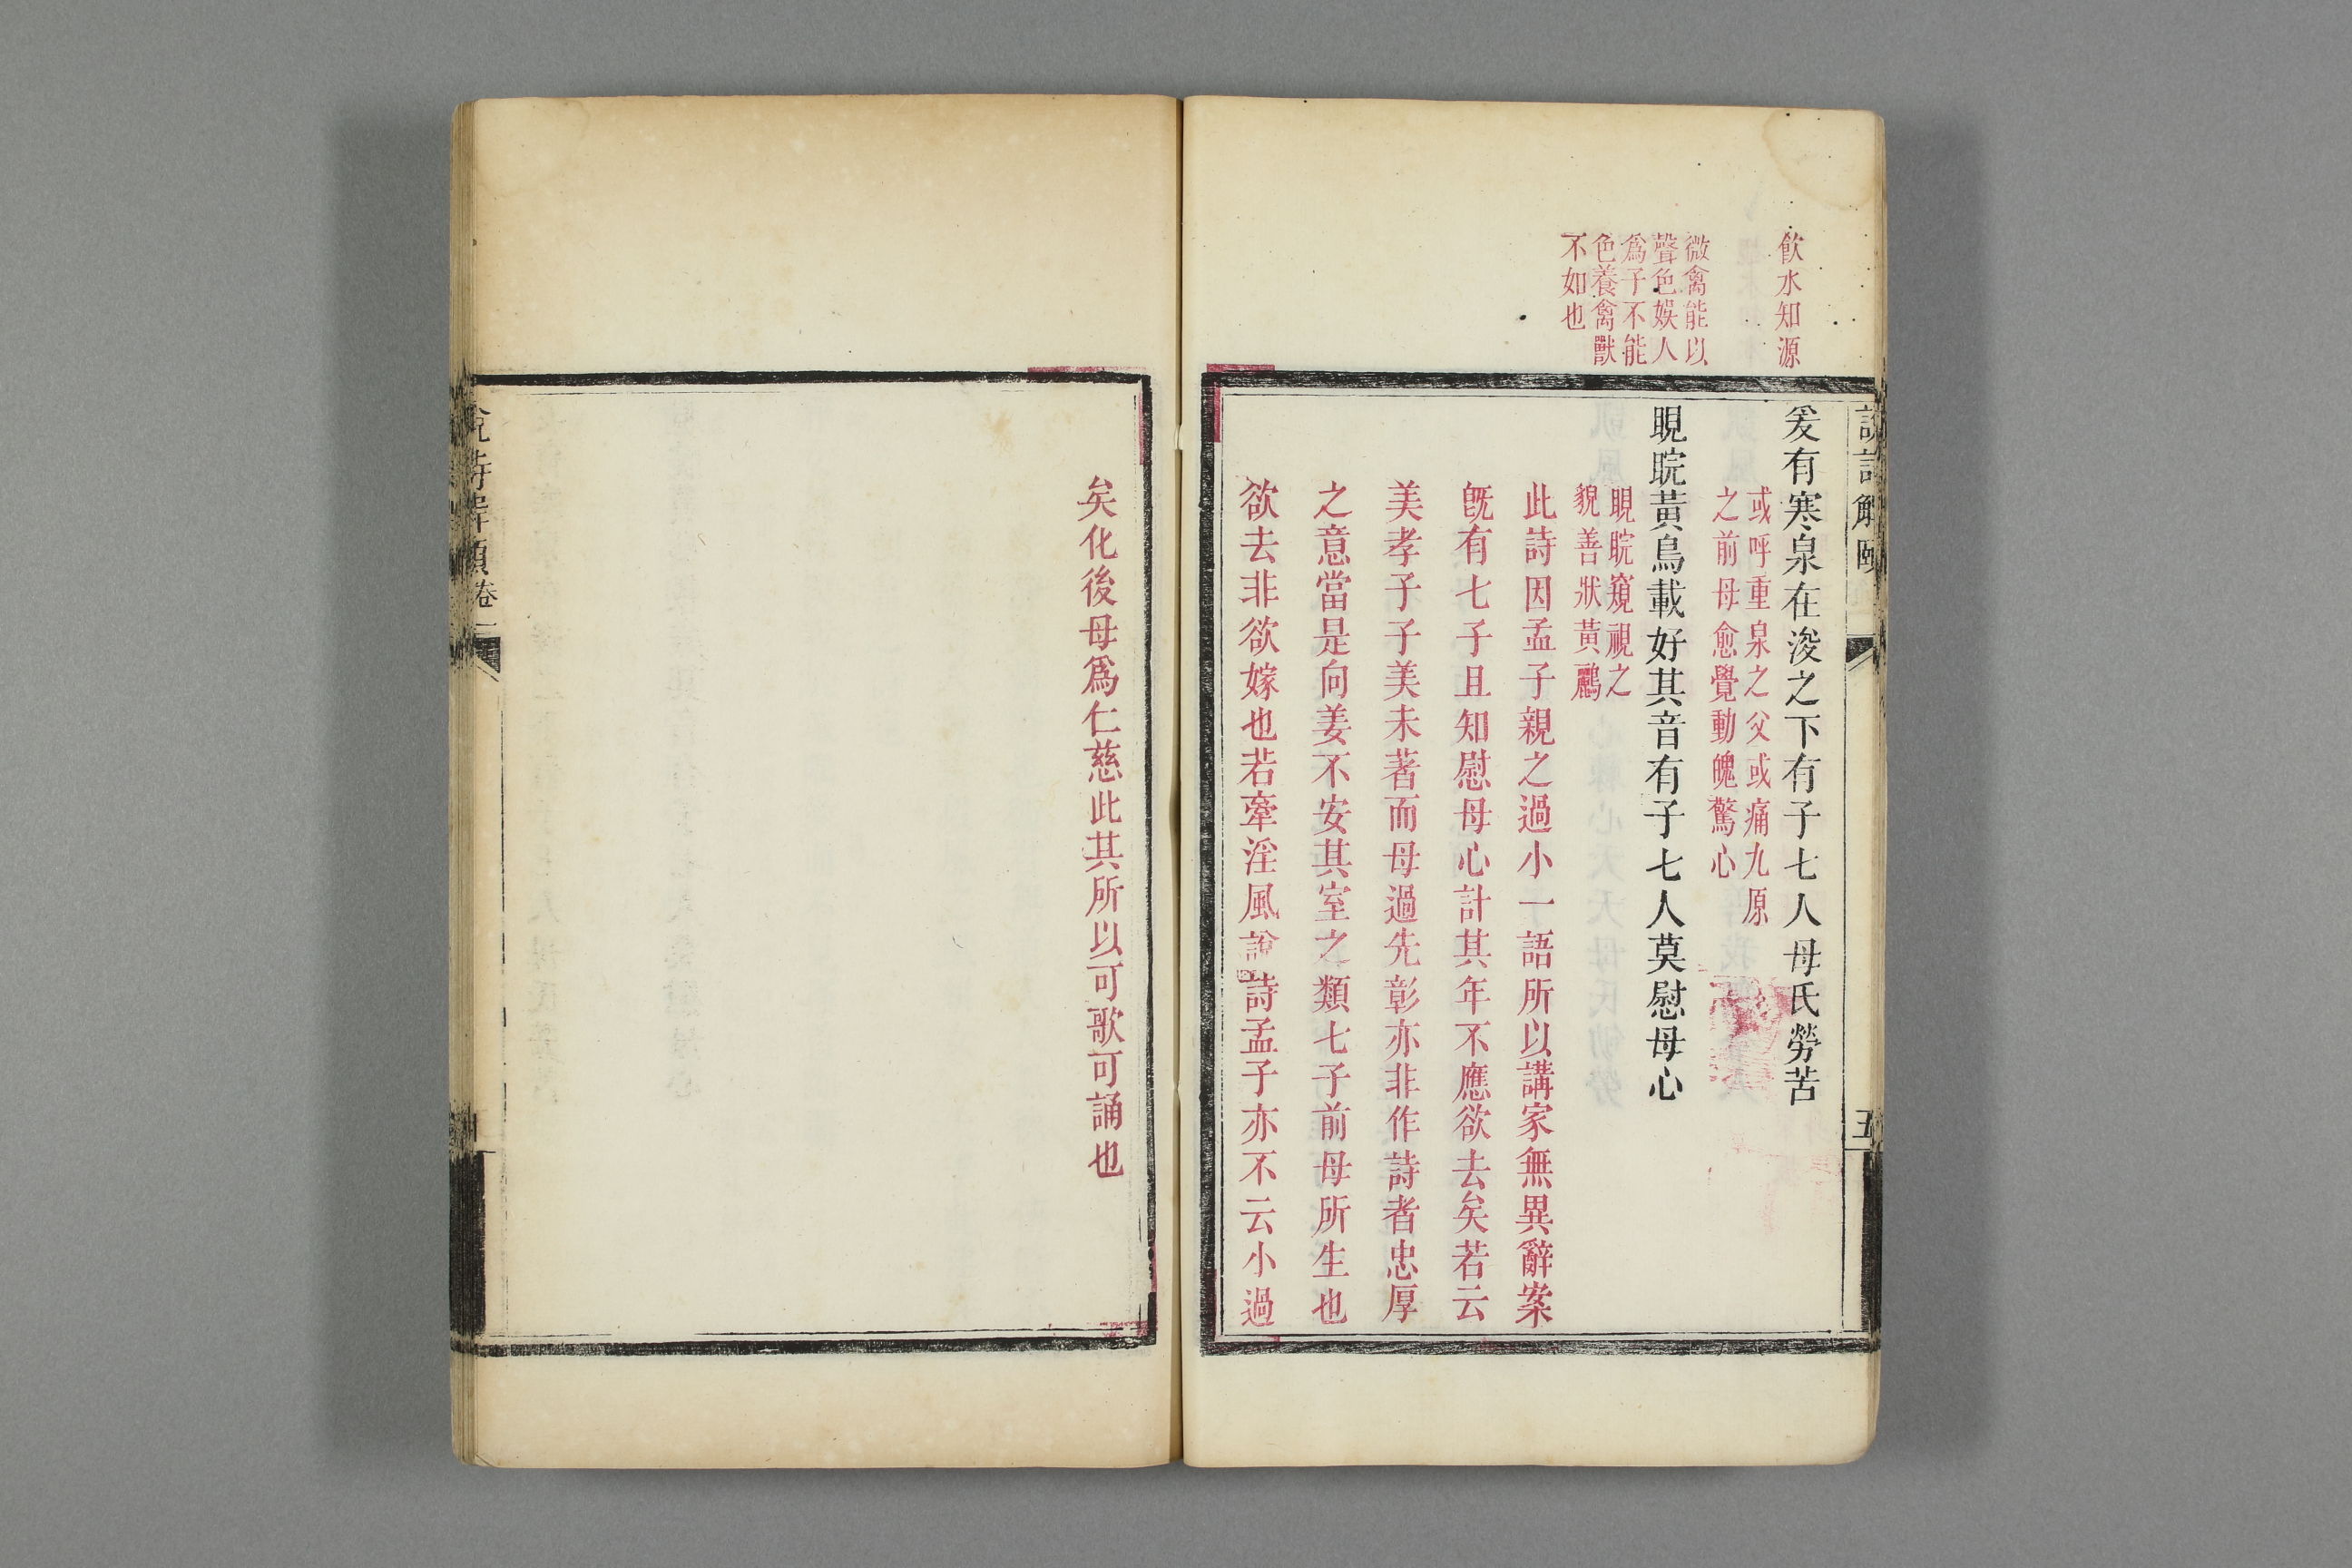 說詩解頤
五
飲水知源
爰有寒泉在浚之下有子七人母氏勞苦
或呼重泉之父或痛九原
之前母愈覺動魄驚心
微禽能以
聲色娛人
爲子不能
色養禽獸
不如也
睍睆黃鳥載好其音有子七人莫慰母心
睍睆窺視之
貌善狀黃鸝
此詩因孟子親之過小一語所以講家無異辭案
旣有七子且知慰母心計其年不應欲去矣若云
美孝子子美未著而母過先彰亦非作詩者忠厚
之意當是向姜不安其室之類七子前母所生也
欲去非欲嫁也若牽淫風說詩孟子亦不云小過
矣化後母爲仁慈此其所以可歌可誦也
說詩解頤卷一